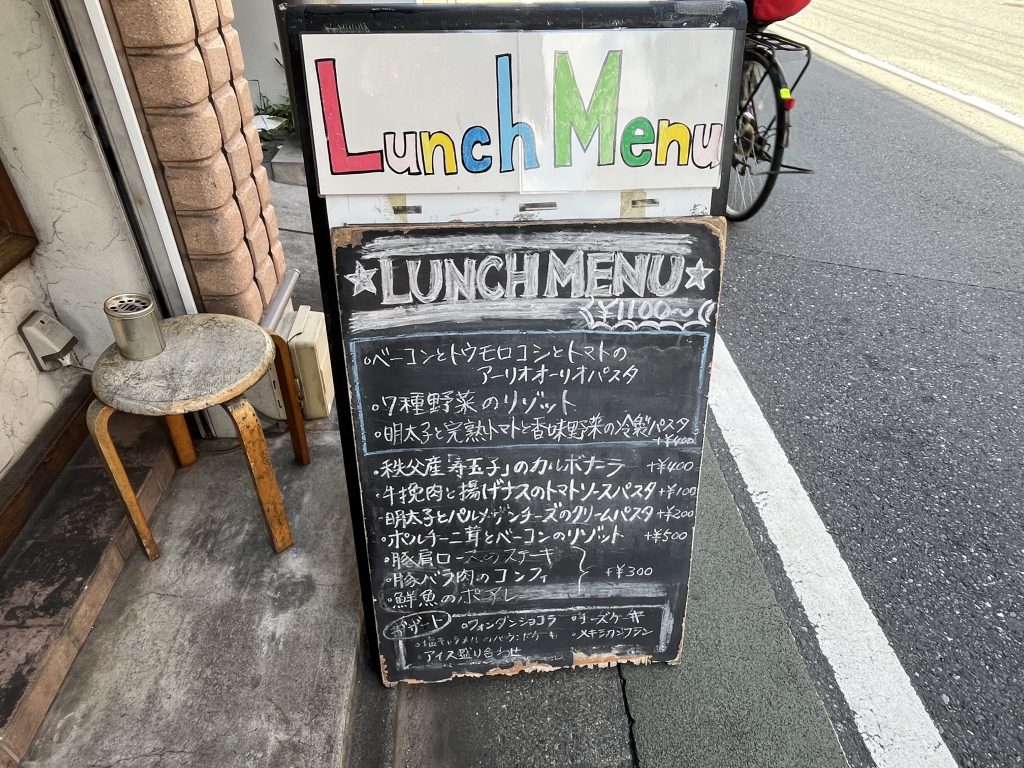 Lunch Menu
☆LUNCH MENU☆
(¥1100〜)
○ベーコンとトウモロコシとトマトの
アーリオオーリオパスタ
○7種野菜のリゾット
○明太子と完熟トマトと香味野菜の冷製パスタ
+¥400
・秩父産「寿玉子」のカルボナーラ +¥400
・牛挽肉と揚げナスのトマトソースパスタ +¥100
・明太子とパルメザンチーズのクリームパスタ +¥200
・ポルチーニ茸とベーコンのリゾット +¥500
・豚肩ロースのステーキ
・豚バラ肉のコンフィ +¥300
・鮮魚のポアレ
デザート ・フォンダンショコラ ・チーズケーキ
・塩キャラメルのパウンドケーキ ・メキシカンフラン
・アイス盛り合わせ